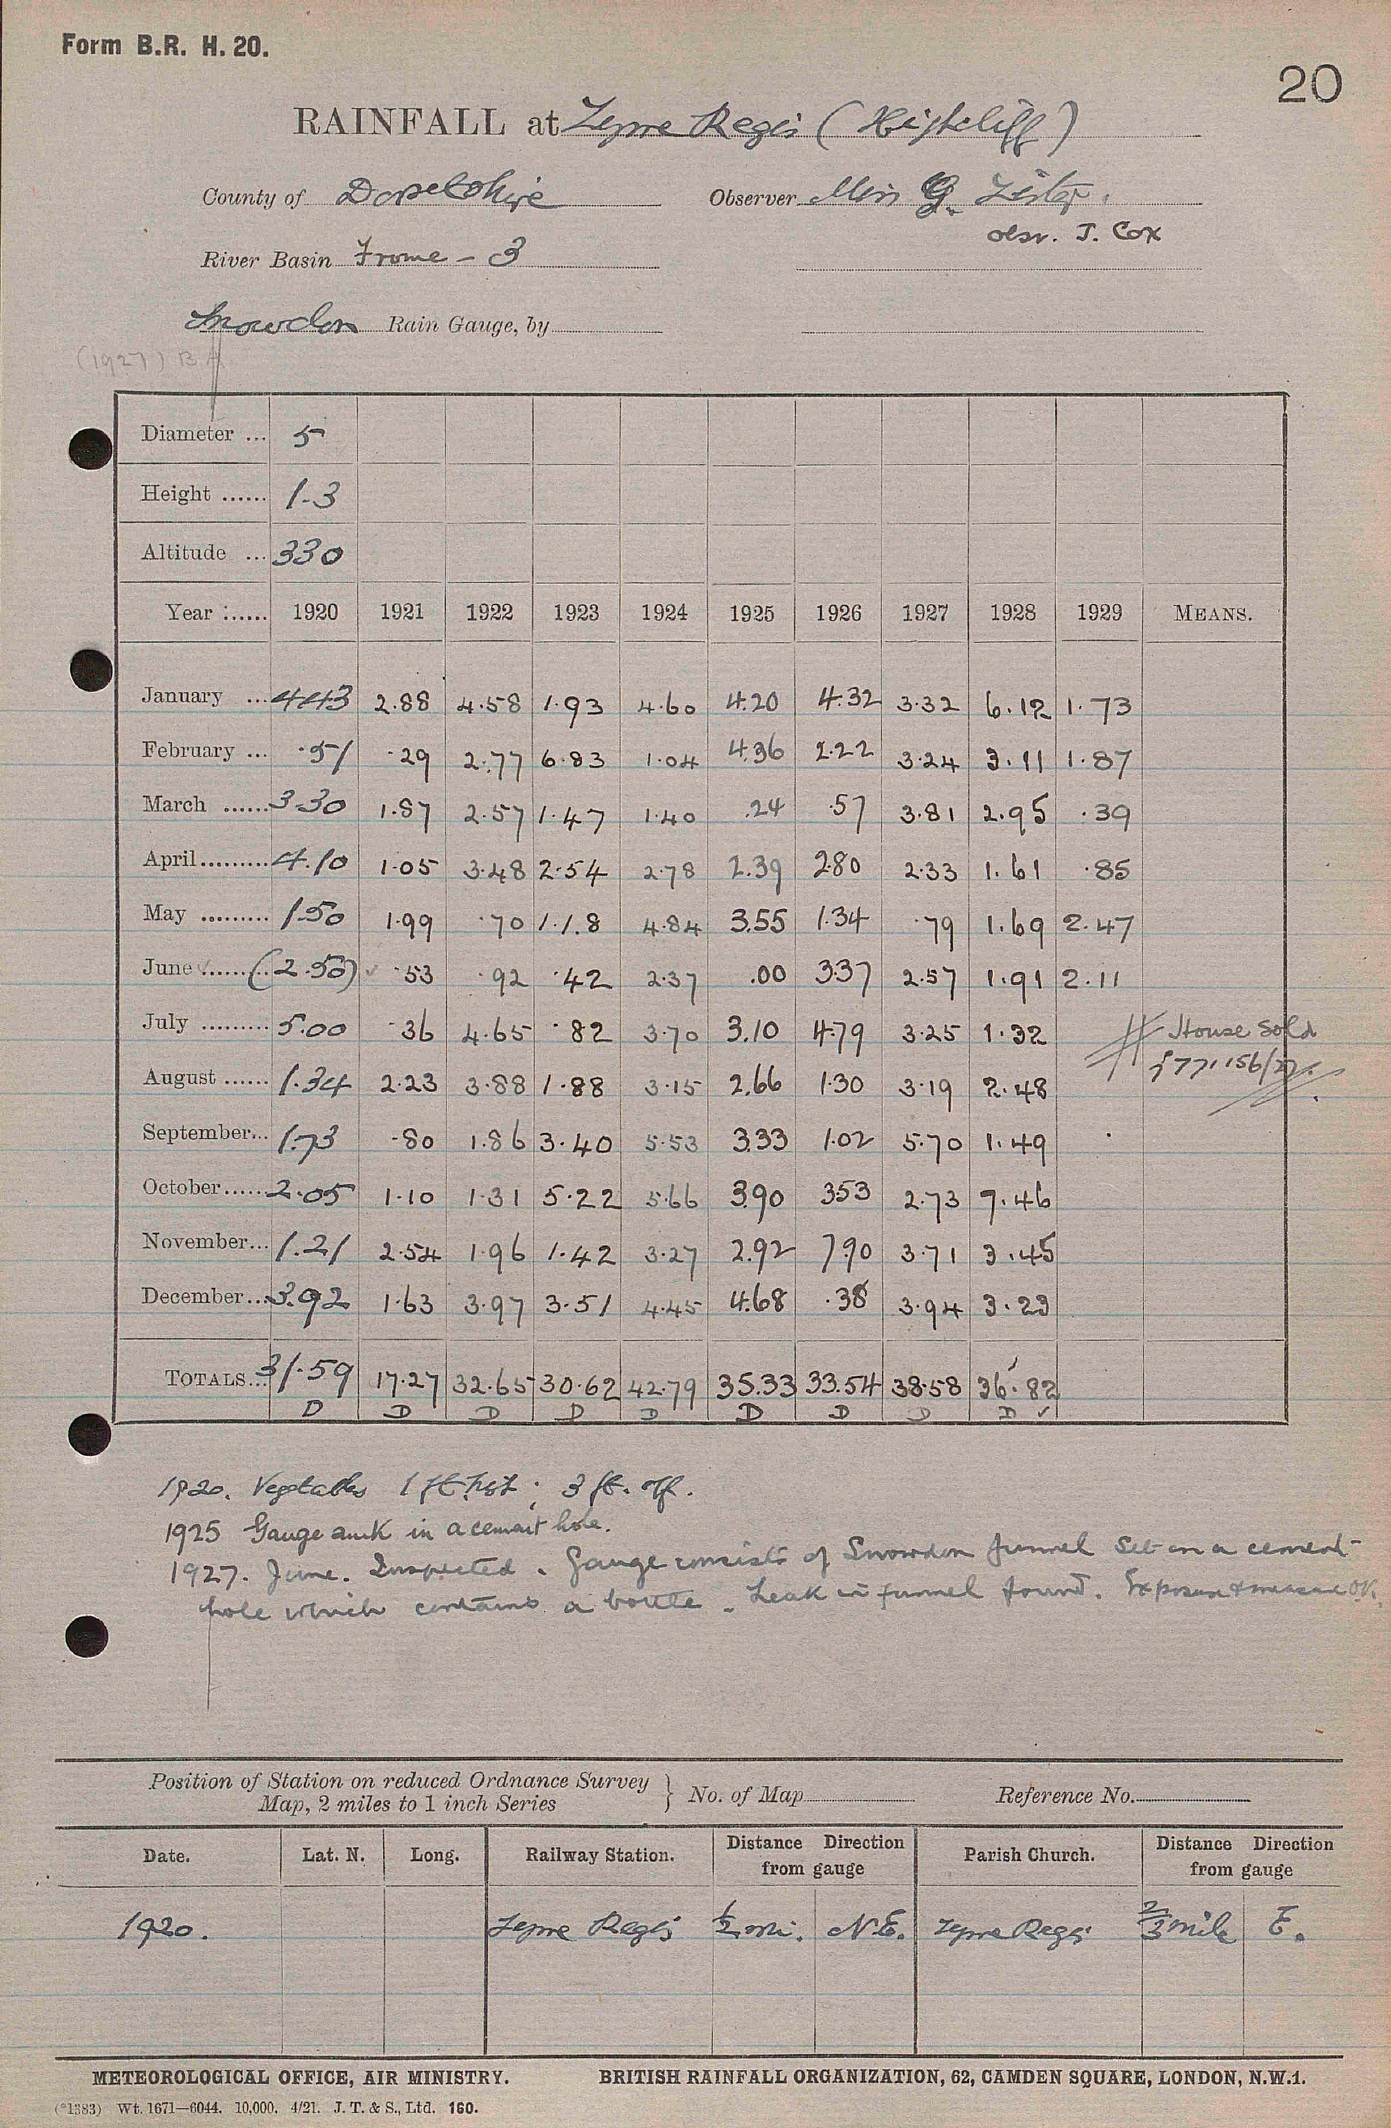 Form B.R. H. 20.
20
RAINFALL at Lyme Regis (Highcliff)
County of Dorsetshire Observer Miss G. Lister.
obsr. J. Cox
River Basin Frome - 3
Snowdon Rain Gauge, by
(1927) B A
Diameter ... 5
Height ...... 1-3
Altitude ... 330
Year ...... 1920 1921 1922 1923 1924 1925 1926 1927 1928 1929 MEANS.
January ... 4.43 2.88 4.58 1.93 4.60 4.20 4.32 3.32 6.12 1.73
February ... .51 .29 2.77 6.83 1.04 4.36 2.22 3.24 3.11 1.87
March ...... 3.30 1.87 2.57 1.47 1.40 .24 .57 3.81 2.95 .39
April ......... 4.10 1.05 3.48 2.54 2.78 2.39 2.80 2.33 1.61 .85
May ......... 1.50 1.99 .70 1.18 4.84 3.55 1.34 .79 1.69 2.47
June ......... (2.50) .53 .92 .42 2.37 .00 3.37 2.57 1.91 2.11
July ......... 5.00 .36 4.65 .82 3.70 3.10 4.79 3.25 1.32 House Sold
August ...... 1.34 2.23 3.88 1.88 3.15 2.66 1.30 3.19 2.48
September... 1.73 .80 1.86 3.40 5.53 3.33 1.02 5.70 1.49
October ...... 2.05 1.10 1.31 5.22 5.66 3.90 3.53 2.73 7.46
November... 1.21 2.54 1.96 1.42 3.27 2.92 7.90 3.71 3.45
December... 3.92 1.63 3.97 3.51 4.45 4.68 .38 3.94 3.23
TOTALS... 31.59 17.27 32.65 30.62 42.79 35.33 33.54 38.58 36.82
D D D D D D D D D ✓
1920. Vegetables 1 ft high; 3 ft. off.
1925 Gauge sunk in a cement hole.
1927. June. Inspected. Gauge consists of Snowdon funnel set in a cement
hole which contains a bottle. Leak in funnel found. Exposure & measure OK.
Position of Station on reduced Ordnance Survey
Map, 2 miles to 1 inch Series } No. of Map Reference No.
Date. Lat. N. Long. Railway Station. Distance Direction from gauge Parish Church. Distance Direction from gauge
1920. Lyme Regis 1/2 mi. N.E. Lyme Regis 2/3 mile E.
METEOROLOGICAL OFFICE, AIR MINISTRY. BRITISH RAINFALL ORGANIZATION, 62, CAMDEN SQUARE, LONDON, N.W.1.
(*1383) Wt. 1671—6044. 10,000. 4/21. J. T. & S., Ltd. 160.